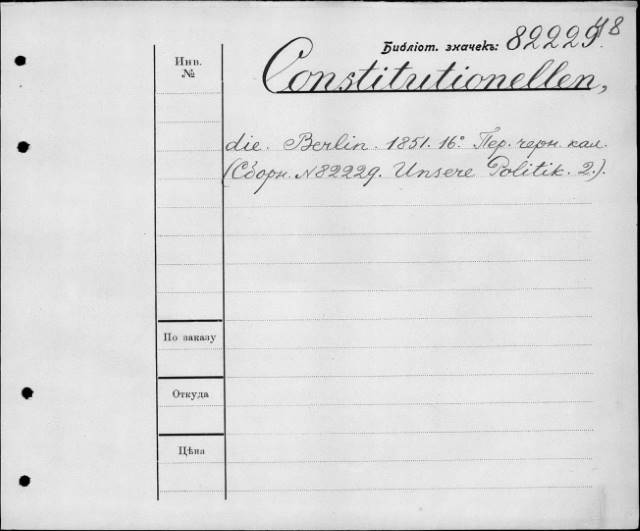 Библіот. значекъ: 82229.
Инв.
№
Constitutionellen,
die. Berlin. 1851. 16º. Пер. черн. кал.
(Сборн. №82229. Unsere Politik. 2.).
По заказу
Откуда
Цѣна